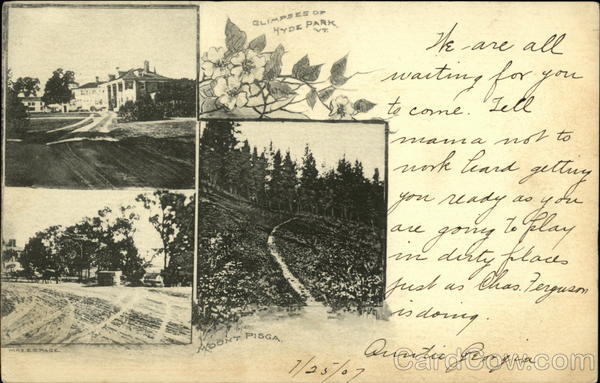 GLIMPSES OF
HYDE PARK
VT.
We are all
waiting for you
to come. Tell
mama not to
work hard getting
you ready as you
are going to play
in dirty places
just as Chas. Ferguson
is doing.
Auntie
7/25/07
MOUNT PISGA.
PAGE.
CardCow.com